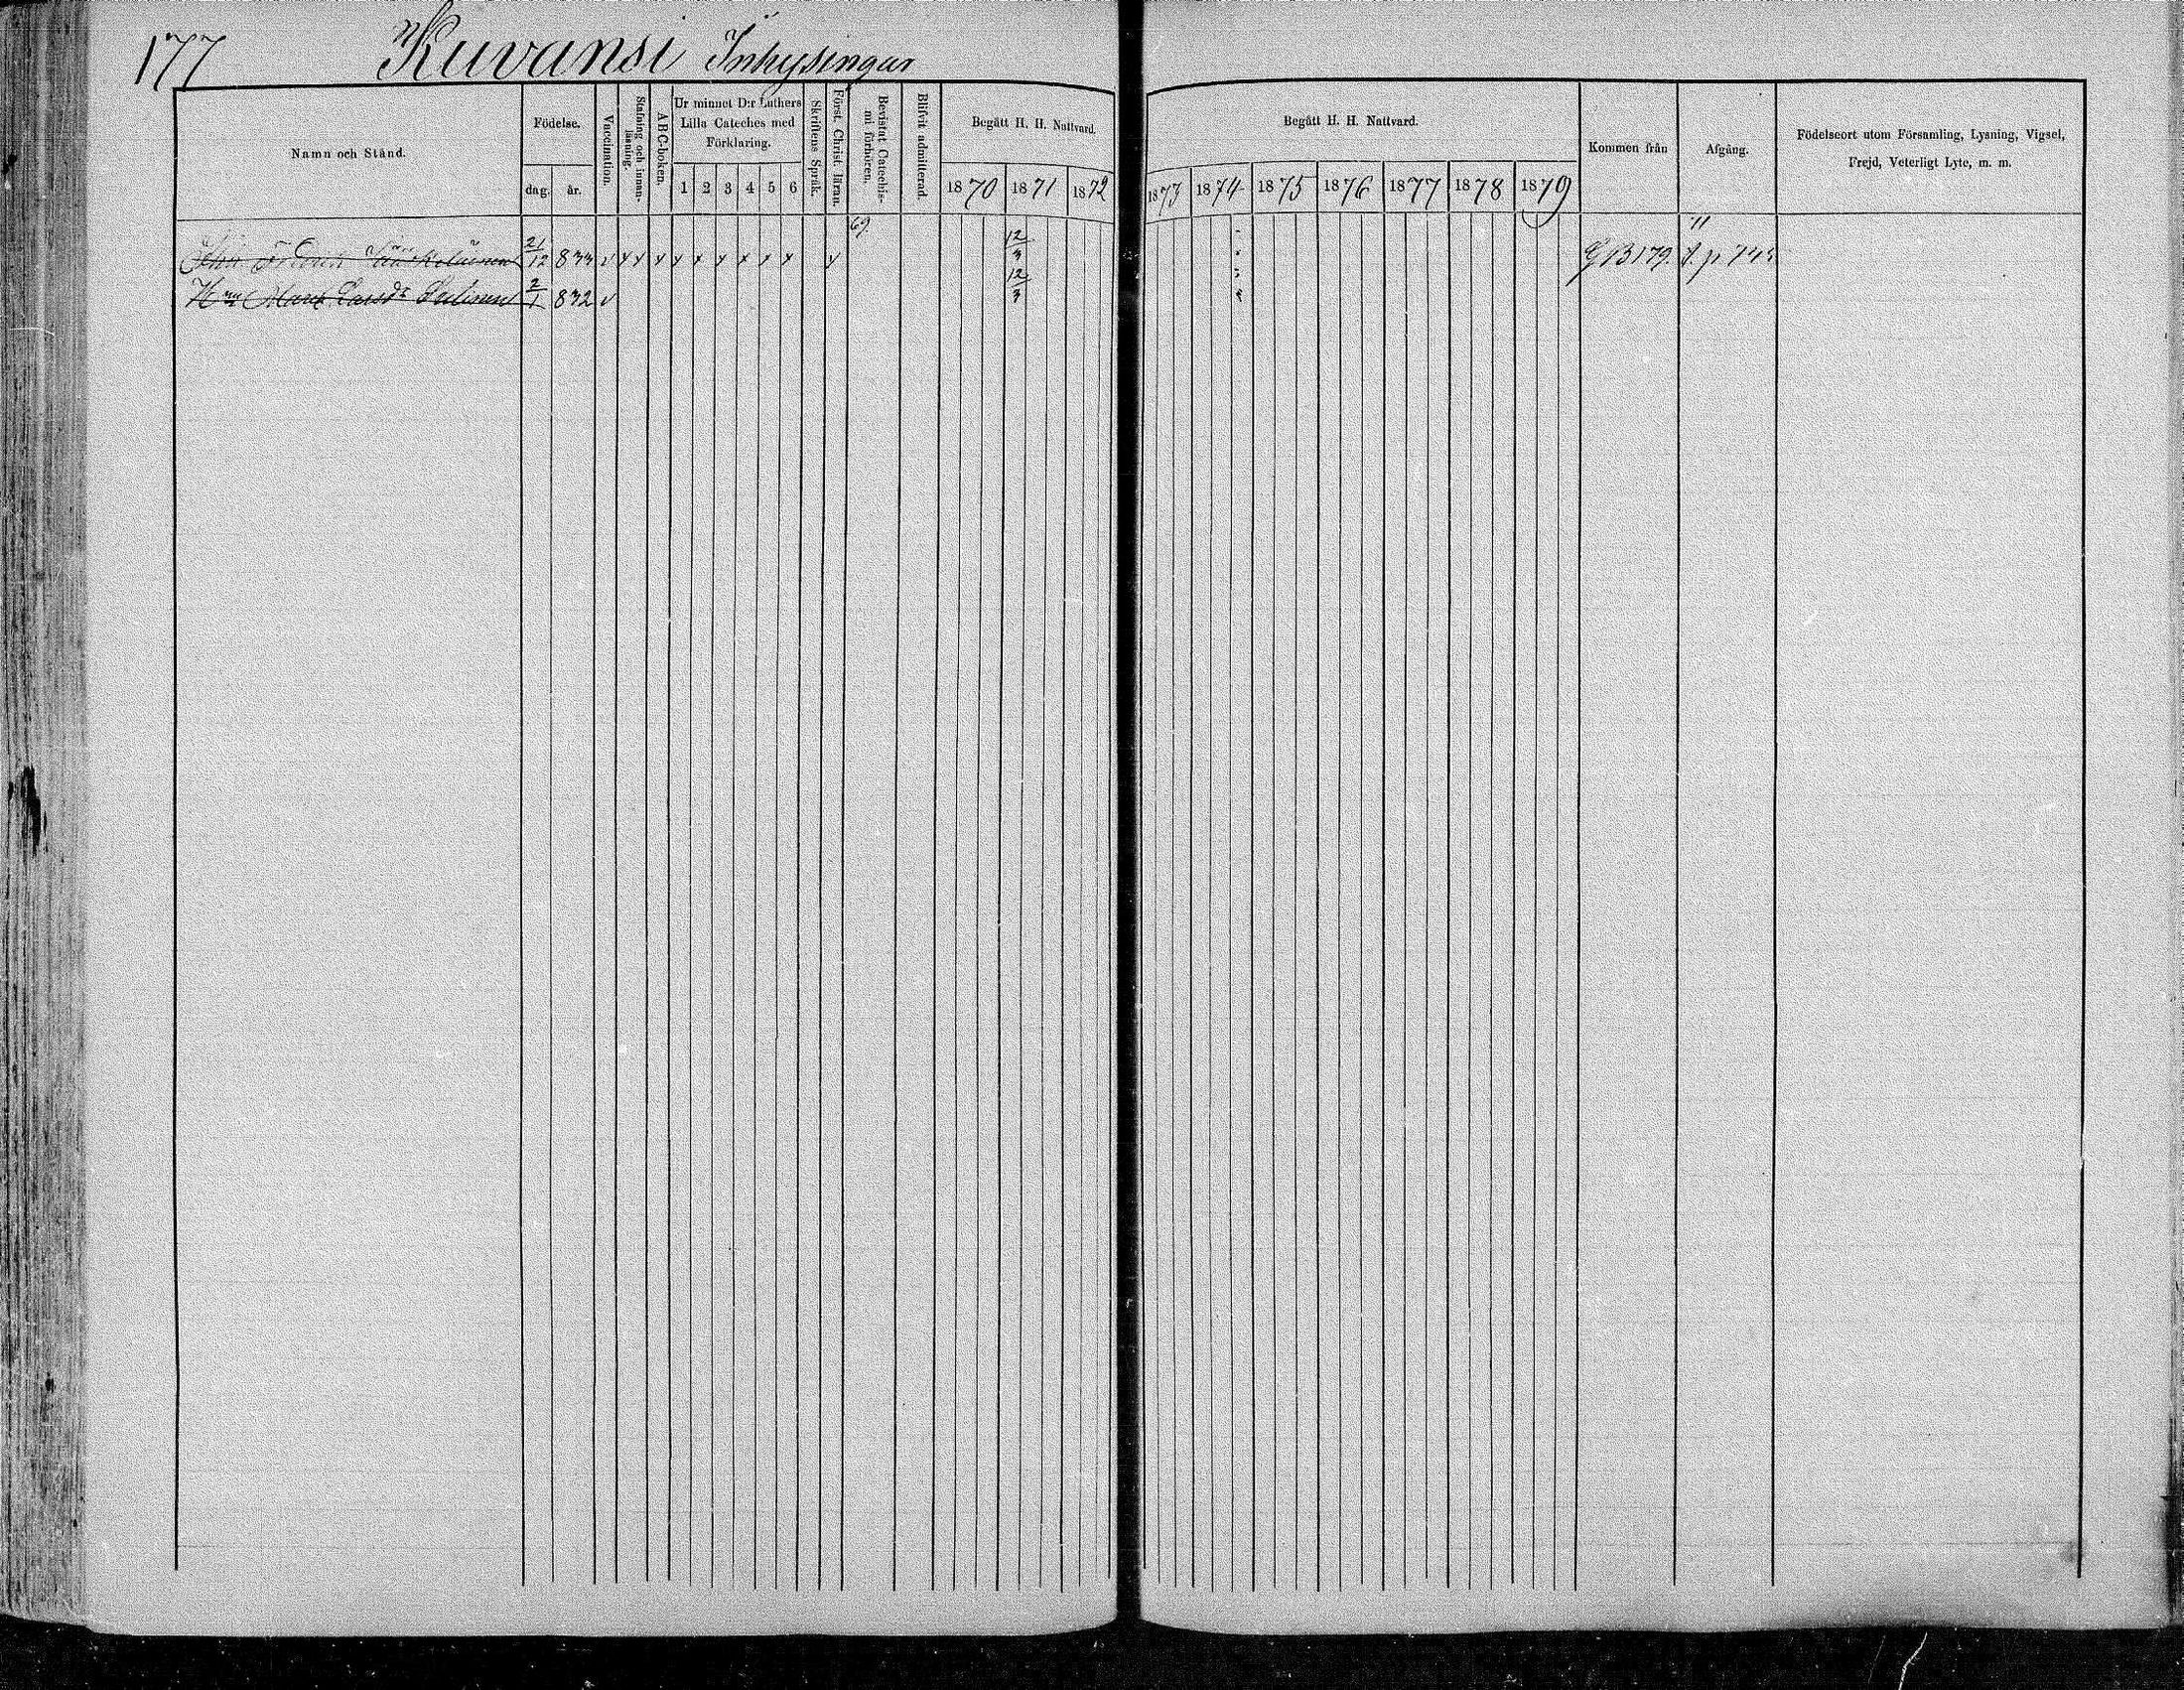 177 Kuvansi Inhysingar
Namn och Stånd.
Födelse.
dag. år.
Vaccination.
Stafning och innan-
läsning.
ABC-boken.
Ur minnet D:r Luthers
Lilla Cateches med
Förklaring.
1 2 3 4 5 6
Skriftens Språk.
Först. Christ. läran.
Bevistat Catechis-
mi förhören.
Blifvit admitterad.
Begått H. H. Nattvard.
1870 1871 1872
Begått H. H. Nattvard.
1873 1874 1875 1876 1877 1878 1879
Kommen från
Afgång.
Födelseort utom Församling, Lysning, Vigsel,
Frejd, Veterligt Lyte, m. m.
69.
21/12 833 v x x x x x x x x x v 12/3 GB 179.
Hun Larsdr 2/1 832 v 12/3